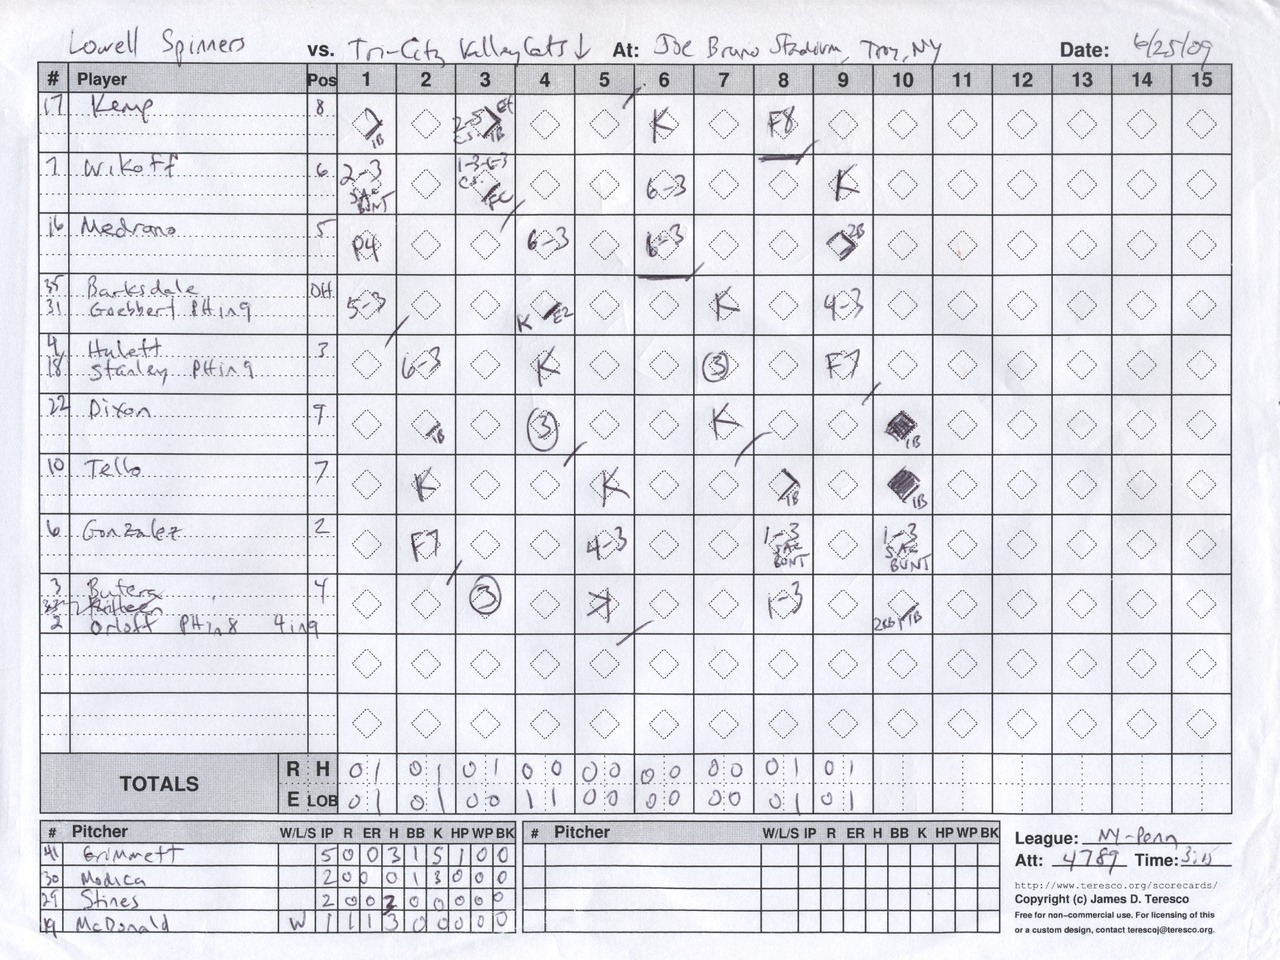 Lowell Spinners vs. Tri-City ValleyCats ↓ At: Joe Bruno Stadium, Troy, NY Date: 6/25/09
# Player Pos 1 2 3 4 5 6 7 8 9 10 11 12 13 14 15
17 Kemp 8 1B 2-5 CS 1B K F8
7 Wikoff 6 2-3 SAC BUNT 1-3-6-3 CS FC 6-3 K
16 Medrano 5 P4 6-3 6-3 2B
35 Barksdale DH
31 Goebbert PHing 5-3 K E2 K 4-3
4 Hulett 3
18 Stanley PHing 6-3 K 3 F7
22 Dixon 9 1B 3 K 1B
10 Tello 7 K K 1B 1B
6 Gonzalez 2 F7 4-3 1-3 SAC BUNT 1-3 SAC BUNT
3 Butera 4 3 1-3 1B
2 Orloff PHin8 4in9
TOTALS R H 0 1 0 1 0 1 0 0 0 0 0 0 0 0 0 1 0 1
E LOB 0 1 0 1 0 0 1 1 0 0 0 0 0 0 0 1 0 1
# Pitcher W/L/S IP R ER H BB K HP WP BK # Pitcher W/L/S IP R ER H BB K HP WP BK
41 Grimmett 5 0 0 3 1 5 1 0 0
30 Modica 2 0 0 0 1 3 0 0 0
29 Stines 2 0 0 2 0 0 0 0 0
19 McDonald W 1 1 1 3 0 0 0 0 0
League: NY-Penn
Att: 4789 Time:
http://www.teresco.org/scorecards/
Copyright (c) James D. Teresco
Free for non-commercial use. For licensing of this
or a custom design, contact terescoj@teresco.org.